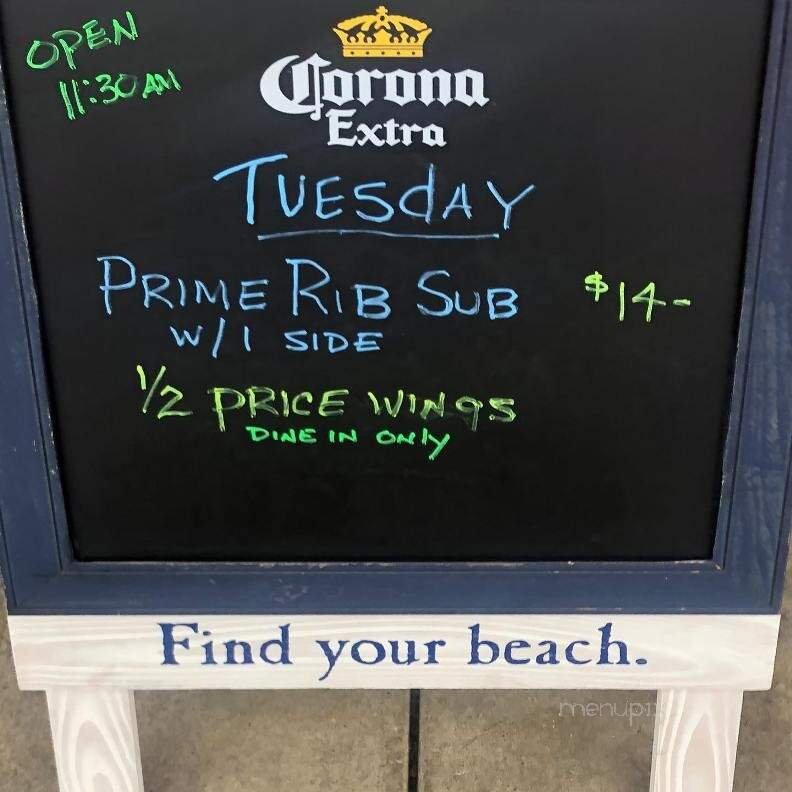 OPEN
11:30 AM
Corona
Extra
TUESdAY
PRIME RIB SUB $14-
W/1 SIDE
1/2 PRICE WINGS
DINE IN ONLY
Find your beach.